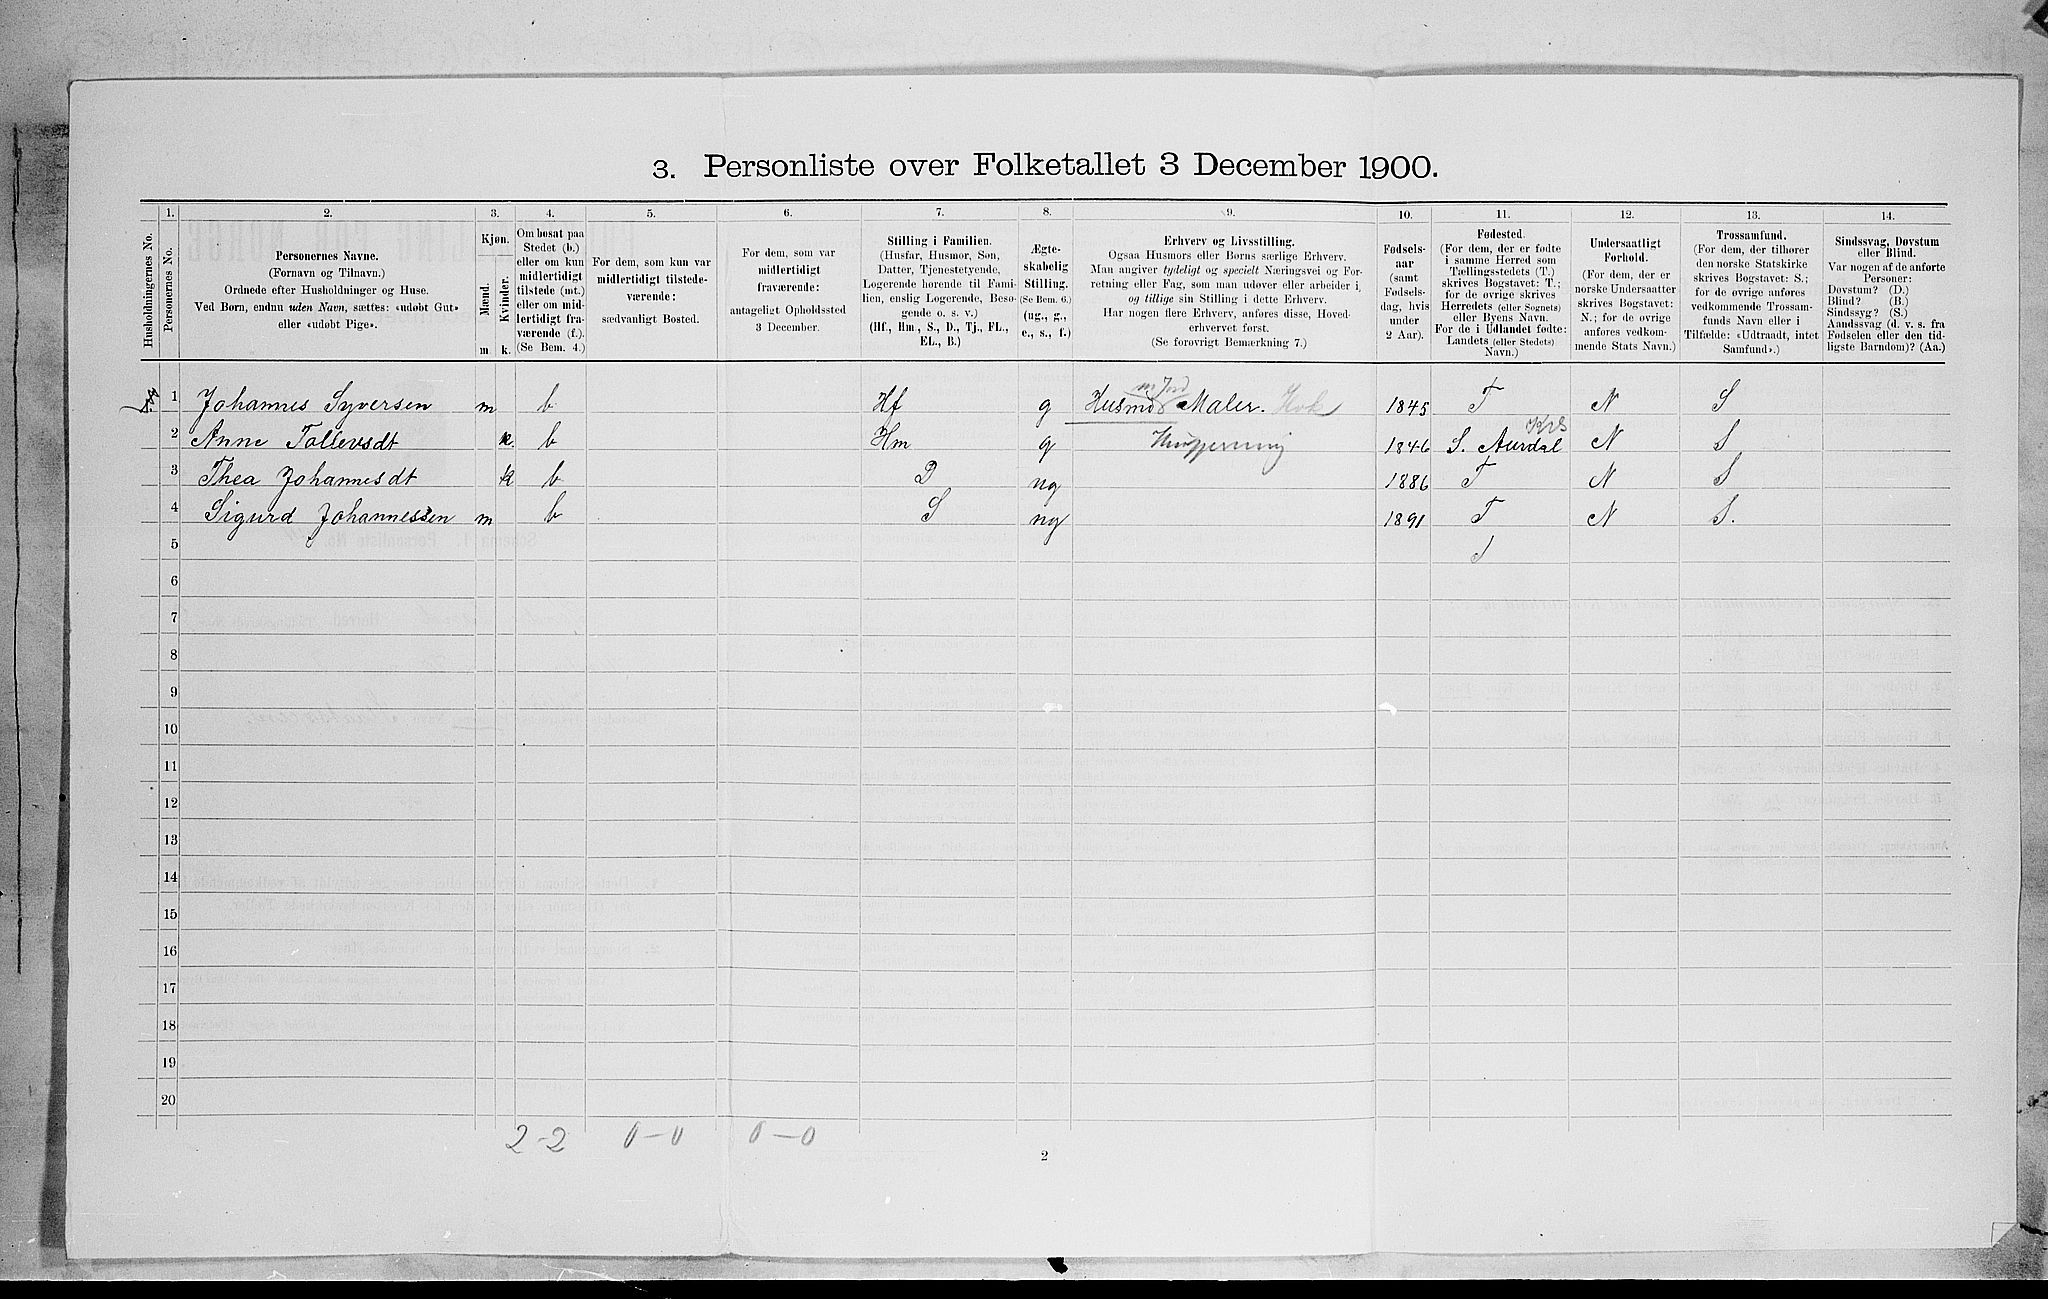 3. Personliste over Folketallet 3 December 1900.
Husholdningernes No.
1.
Personernes No.
2.
Personernes Navne.
(Fornavn og Tilnavn.)
Ordnede efter Husholdninger og Huse.
Ved Børn, endnu uden Navn, sættes: «udøbt Gut»
eller «udøbt Pige».
3.
Kjøn.
Mænd.
Kvinder.
m
k.
4.
Om bosat paa
Stedet (b.)
eller om kun
midlertidigt
tilstede (mt.)
eller om mid-
lertidigt fra-
værende (f.).
(Se Bem. 4.)
5.
For dem, som kun var
midlertidigt tilstede-
værende:
sædvanligt Bosted.
6.
For dem, som var
midlertidigt
fraværende:
antageligt Opholdssted
3 December.
7.
Stilling i Familien.
(Husfar, Husmor, Søn,
Datter, Tjenestetyende,
Logerende hørende til Fami-
lien, enslig Logerende, Besø-
gende o. s. v.)
(Hf., Hm., S., D., Tj., FL.,
EL., B.)
8.
Ægte-
skabelig
Stilling.
(Se Bem. 6.)
(ug., g.,
e., s., f.)
9.
Erhverv og Livsstilling.
Ogsaa Husmors eller Børns særlige Erhverv.
Man angiver tydeligt og specielt Næringsvei og For-
retning eller Fag, som man udøver eller arbeider i,
og tillige sin Stilling i dette Erhverv.
Har nogen flere Erhverv, anføres disse, Hoved-
erhvervet først.
(Se forøvrigt Bemærkning 7.)
10.
Fødsels-
aar
(samt
Fødsels-
dag, hvis
under
2 Aar).
11.
Fødested.
(For dem, der er fødte
i samme Herred som
Tællingsstedets (T.)
skrives Bogstavet: T.;
for de øvrige skrives
Herredets (eller Sognets)
eller Byens Navn.
For de i Udlandet fødte:
Landets (eller Stedets)
Navn.)
12.
Undersaatligt
Forhold.
(For dem, der er
norske Undersaatter
skrives Bogstavet:
N.; for de øvrige
anføres vedkom-
mende Stats Navn.)
13.
Trossamfund.
(For dem, der tilhører
den norske Statskirke
skrives Bogstavet: S.;
for de øvrige anføres
vedkommende Trossam-
funds Navn eller i
Tilfælde: «Udtraadt, intet
Samfund».)
14.
Sindssvag, Døvstum
eller Blind.
Var nogen af de anførte
Personer:
Døvstum? (D.)
Blind? (B.)
Sindssyg? (S.)
Aandssvag (d. v. s. fra
Fødselen eller den tid-
ligste Barndom)? (Aa.)
m Jord
1 Johannes Syversen m b Hf g Husmd Maler. 1845 T N S
2 Anne Tollevsdt k. b Hm g 1846 S. Aurdal N S
3 Thea Johannesdt k b D ug 1886 T N S
4 Sigurd Johannessen m b S ug 1891 T N S.
5
6
7
8
9
10
11
12
13
14
15
16
17
18
19
20
2-2 0-0 0-0
2